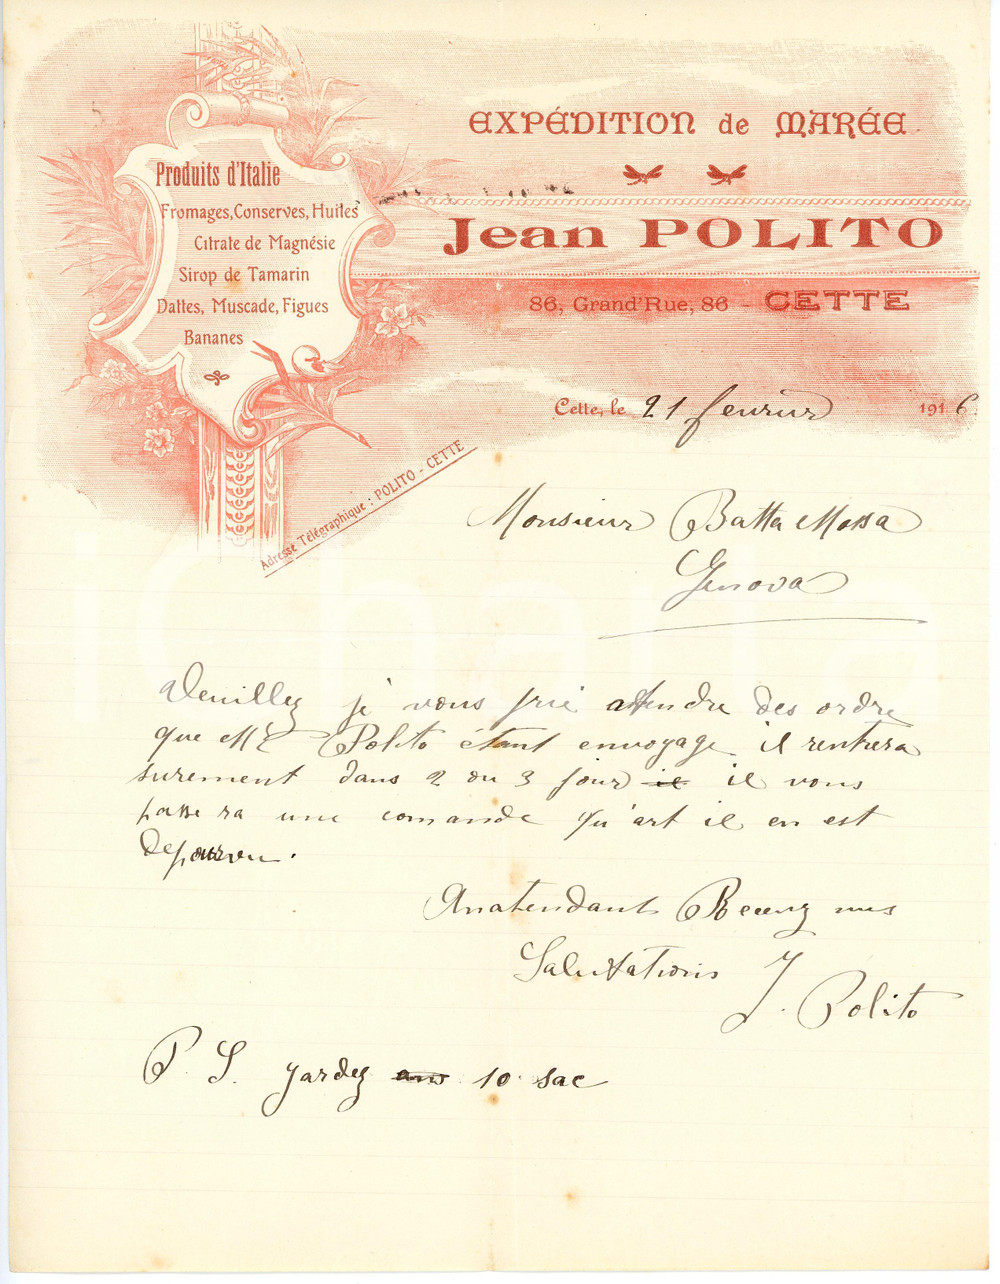 EXPÉDITION de MARÉE
Produits d'Italie
Fromages, Conserves, Huiles
Citrate de Magnésie
Sirop de Tamarin
Dattes, Muscade, Figues
Bananes
Jean POLITO
86, Grand'Rue, 86 - CETTE
Adresse Télégraphique : POLITO - CETTE
Cette, le 21 fevrier 1916
Monsieur Batta Mossa
Genova
Veuillez je vous prie attendre des ordre
que Mr Polito étant envoyage il rentrera
surement dans 2 ou 3 jour il il vous
passera une comande qu'art il en est
depourvu.
Anatendant Recevez mes
Salutations J. Polito
P. S. gardez 10 sac